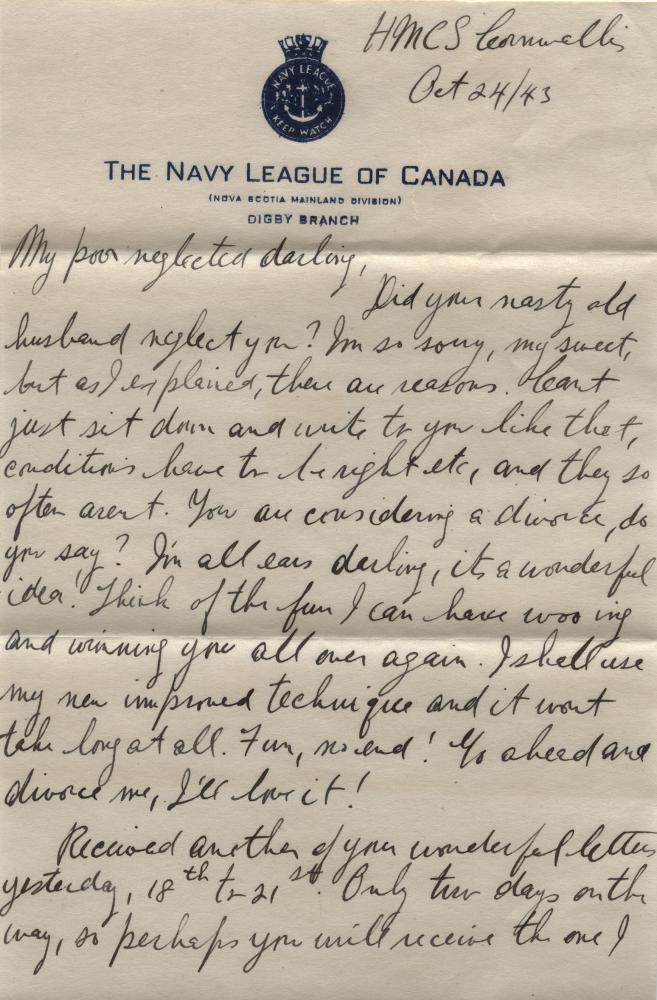 HMCS Cornwallis
Oct 24/43
NAVY LEAGUE
KEEP WATCH
THE NAVY LEAGUE OF CANADA
(NOVA SCOTIA MAINLAND DIVISION)
DIGBY BRANCH
My poor neglected darling,
Did your nasty old
husband neglect you? I'm so sorry, my sweet,
but as I explained, there are reasons. Can't
just sit down and write to you like that,
conditions have to be right etc, and they so
often arent. You are considering a divorce, do
you say? I'm all ears darling, its a wonderful
idea! Think of the fun I can have wooing
and winning you all over again. I shall use
my new improved technique and it wont
take long at all. Fun, no end! Go ahead and
divorce me, I'll love it!
Received another of your wonderful letters
yesterday, 18th to 21st. Only two days on the
way, so perhaps you will receive the one I